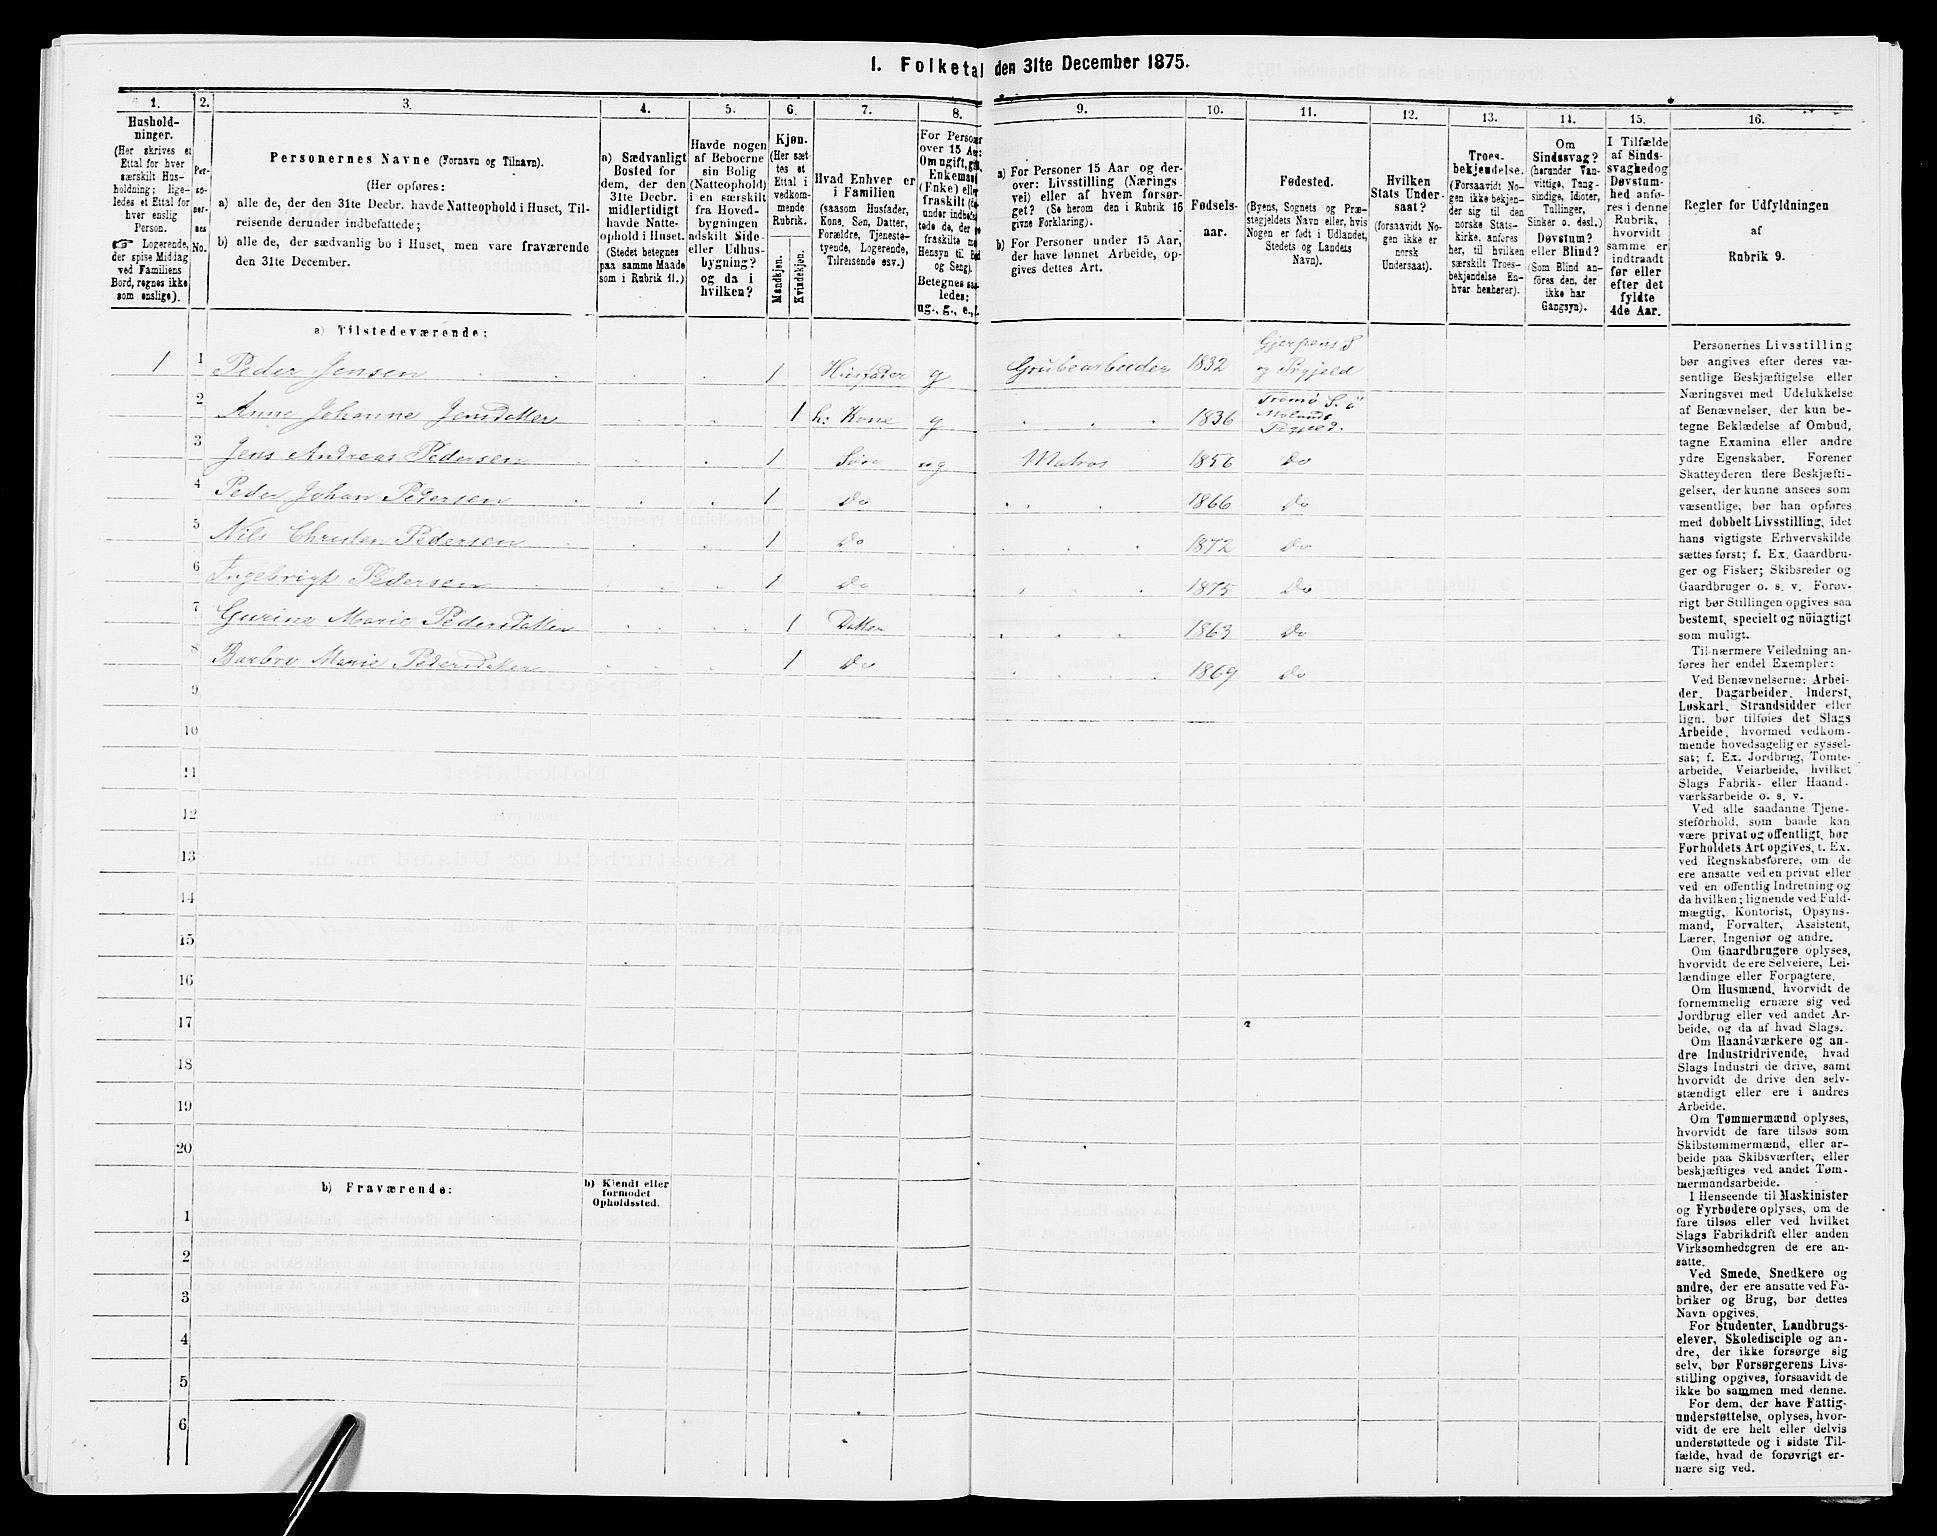 I. Folketal den 31te December 1875.
1.
Hushold-
ninger.
(Her skrives et
Ettal for hver
særskilt Hus-
holdning; lige-
ledes et Ettal for
hver enslig
Person.
☞ Logerende,
der spise Middag
ved Familiens
Bord, regnes ikke
som enslige).
2.
Per-
so-
ner-
nes
No.
3.
Personernes Navne (Fornavn og Tilnavn).
(Her opføres:
a) alle de, der den 31te Decbr. havde Natteophold i Huset, Til-
reisende derunder indbefattede;
b) alle de, der sædvanlig bo i Huset, men vare fraværende
den 31te December.
4.
a) Sædvanligt
Bosted for
dem, der den
31te Decbr.
midlertidigt
havde Natte-
ophold i Huset.
(Stedet betegnes
paa samme Maade
som i Rubrik 11.)
5.
Havde nogen
af Beboerne
sin Bolig
(Natteophold)
i en særskilt
fra Hoved-
bygningen
adskilt Side-
eller Udhus-
bygning?
og da i
hvilken?
6.
Kjøn.
(Her sæt-
tes et
Ettal i
vedkom-
mende
Rubrik.
Mandkjøn.
Kvindekjøn.
7.
Hvad Enhver er
i Familien
(saasom Husfader,
Kone, Søn, Datter,
Forældre, Tjeneste-
tyende, Logerende,
Tilreisende osv.)
8.
For Personer
over 15 Aar:
Om ugift, gift,
Enkemand
(Enke) eller
fraskilt
Betegnes saa-
ledes:
ug., g., e., f.
9.
a) For Personer 15 Aar og der-
over: Livsstilling (Nærings-
vei) eller af hvem forsør-
get? (Se herom den i Rubrik 16
givne Forklaring).
b) For Personer under 15 Aar,
der have lønnet Arbeide, op-
gives dettes Art.
10.
Fødsels-
aar.
11.
Fødested.
(Byens, Sognets og Præ-
stegjeldets Navn eller, hvis
Nogen er født i Udlandet,
Stedets og Landets
Navn).
12.
Hvilken
Stats Under-
saat?
(forsaavidt No-
gen ikke er
norsk
Undersaat).
13.
Troes-
bekjendelse.
(Forsaavidt No-
gen ikke bekjen-
der sig til den
norske Stats-
kirke, anføres
her, til hvilken
særskilt Troes-
bekjendelse En-
hver henhører).
14.
Om
Sindssvag?
(herunder Van-
vittige, Tung-
sindige, Idioter,
Tullinger,
Sinker o. desl.)
Døvstum?
eller Blind?
(Som Blind an-
føres den, der
ikke har
Gangsyn).
15.
I Tilfælde
af Sinds-
svaghed og
Døvstum-
hed anfø-
res i denne
Rubrik,
hvorvidt
samme er
indtraadt
før eller
efter det
fyldte
4de Aar.
16.
Regler for Udfyldningen
af
Rubrik 9.
a) Tilstedeværende:
1 1 Peder Jensen 1 Husfader g Grubearbeider 1832 Gjerpens S
og Prgjeld
2 Anne Johanne Jensdatter 1 h: Kone g 1836 Tromø S. ö
Molands
Prgjeld.
3 Jens Andreas Pedersen 1 Søn ug Matros 1856 Do
4 Peder Johan Pedersen 1 Do 1866 Do
5 Nils Christen Pedersen 1 Do 1872 Do
6 Ingebrigt Pedersen 1 Do 1875 Do
7 Gurine Marie Pedersdatter 1 Datter 1863 Do
8 Barbro Marie Pedersdatter 1 Do 1869 Do
9
10
11
12
13
14
15
16
17
18
19
20
b) Fraværende:
b) Kjendt eller
formodet
Opholdssted.
1
2
3
4
5
6
Personernes Livsstilling
bør angives efter deres væ-
sentlige Beskjæftigelse eller
Næringsvei med Udelukkelse
af Benævnelser, der kun be-
tegne Beklædelse af Ombud,
tagne Examina eller andre
ydre Egenskaber. Forener
Skatteyderen flere Beskjæfti-
gelser, der kunne ansees som
væsentlige, bør han opføres
med dobbelt Livsstilling, idet
hans vigtigste Erhvervskilde
sættes først; f. Ex. Gaardbru-
ger og Fisker; Skibsreder og
Gaardbruger o. s. v. Forøv-
rigt bør Stillingen opgives saa
bestemt, specielt og nöiagtigt
som muligt.
Til nærmere Veiledning an-
føres her endel Exempler:
Ved Benævnelserne: Arbei-
der, Dagarbeider, Inderst,
Løskarl, Strandsidder eller
lign. bør tilføies det Slags
Arbeide, hvormed vedkom-
mende hovedsagelig er syssel-
sat; f. Ex. Jordbrug, Tomte-
arbeide, Veiarbeide, hvilket
Slags Fabrik- eller Haand-
værksarbeide o. s. v.
Ved alle saadanne Tjene-
steforhold, som baade kan
være privat og offentligt, bør
Forholdets Art opgives, t. Ex.
ved Regnskabsførere, om de
ere ansatte ved en privat eller
ved en offentlig Indretning og
da hvilken; lignende ved Fuld-
mægtig, Kontorist, Opsyns-
mand, Forvalter, Assistent,
Lærer, Ingeniør og andre.
Om Gaardbrugere oplyses,
hvorvidt de ere Selveiere, Lei-
lændinge eller Forpagtere.
Om Husmænd, hvorvidt de
fornemmelig ernære sig ved
Jordbrug eller ved andet Ar-
beide, og da af hvad Slags.
Om Haandværkere og an-
dre Industridrivende, hvad
Slags Industri de drive, samt
hvorvidt de drive den selv-
stændigt eller ere i andres
Arbeide.
Om Tømmermænd oplyses,
hvorvidt de fare tilsøs som
Skibstømmermænd, eller ar-
beide paa Skibsværfter, eller
beskjæftiges ved andet Tøm-
mermandsarbeide.
I Henseende til Maskinister
og Fyrbødere oplyses, om de
fare tilsøs eller ved hvilket
Slags Fabrikdrift eller anden
Virksomhedsgren de ere an-
satte.
Ved Smede, Snedkere og
andre, der ere ansatte ved Fa-
briker og Brug, bør dettes
Navn opgives.
For Studenter, Landbrugs-
elever, Skoledisciple og an-
dre, der ikke forsørge sig
selv, bør Forsørgerens Livs-
stilling opgives, forsaavidt de
ikke bo sammen med denne.
For dem, der have Fattig-
understøttelse, oplyses, hvor-
vidt de ere helt eller delvis
understøttede og i sidste Til-
fælde, hvad de forøvrigt er-
nære sig ved.